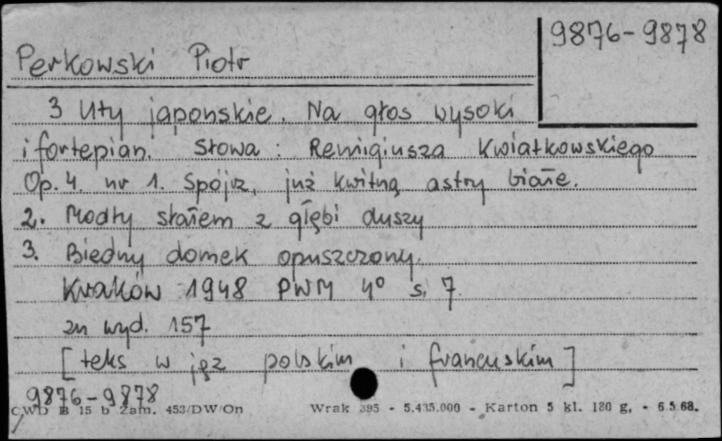 9876-9878
Perkowski Piotr
3 Uty japońskie. Na głos wysoki
i fortepian. Słowa: Remigiusza Kwiatkowskiego
Op. 4. nr 1. Spójrz, już kwitną astry białe.
2. Modły słałem z głębi duszy
3. Biedny domek opuszczony.
Kraków 1948 PWM 4° s. 7.
zn wyd. 157
[teks w jęz polskim i francuskim]
9876-9878
CWD B 15 b Zam. 453/DW/On Wrak 395 - 5.435.000 - Karton 5 kl. 180 g. - 6.5.68.